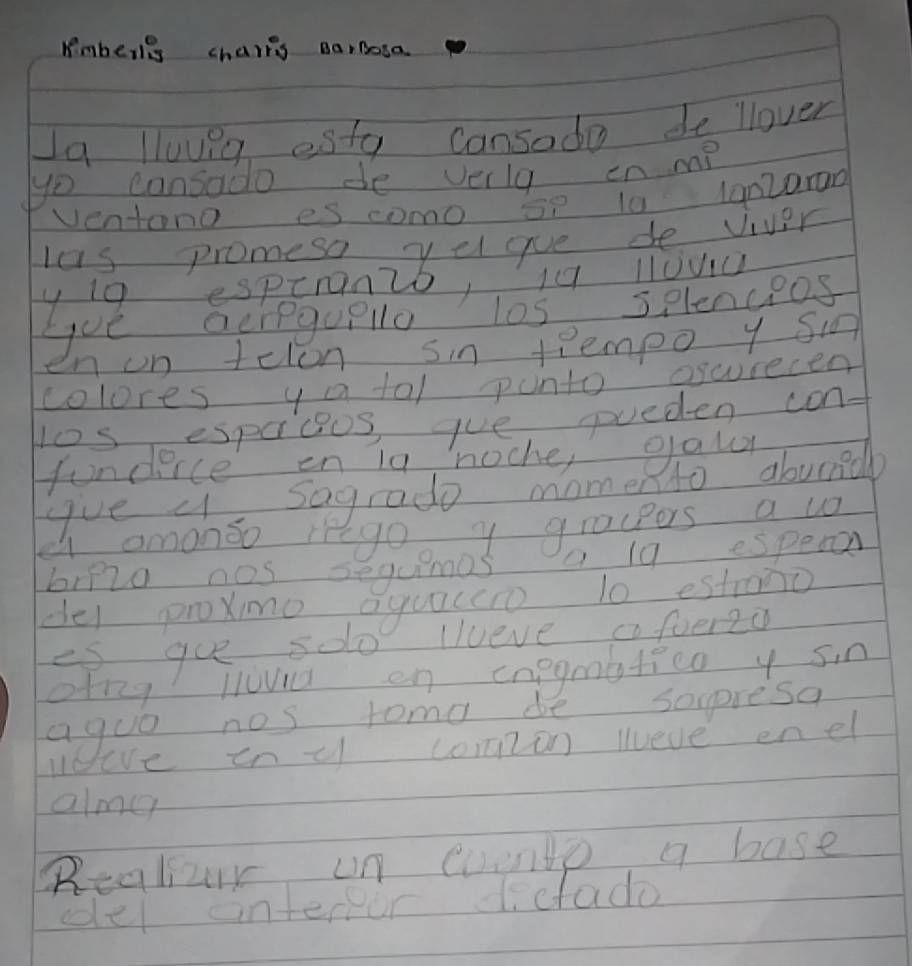 Kimberlis charris Barbosa
La lluvia esta cansado de llover
yo cansado de verla en mi
ventana es como si la lanzaran
las promesa y el que de vivir
y la esperanzo, la lluvia
que aeriguillo los silencios
en un telon sin tiempo y sin
colores y a tal punto oscurecen
los espacios, que pueden con-
fundirce en la noche, ojala
que el sagrado momento
el omonso riego y gracias a la
briza nos seguimos a la espera
del proximo aguacero lo estraño
es que solo llueve a fuerza
otra lluvia en enigmatica y sin
agua nos toma de sorpresa
llueve en el corazon llueve en el
alma
Realizar un cuento a base
del anterior dictado